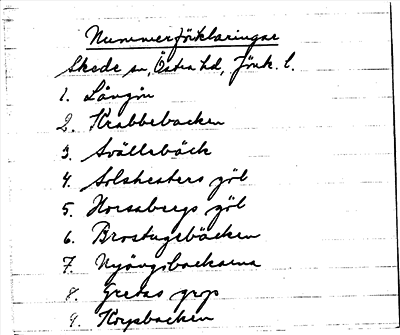 Nummerförklaringar
Skede sn, Östra hd, Jönk. l.
1. Långön
2. Krabbebacken
3. Svällsbäck
4. Solskaters göl
5. Horsabergs göl
6. Brostugebäcken
7. Nyängsbackarna
8. Gretas grop
9. Korpsbacken